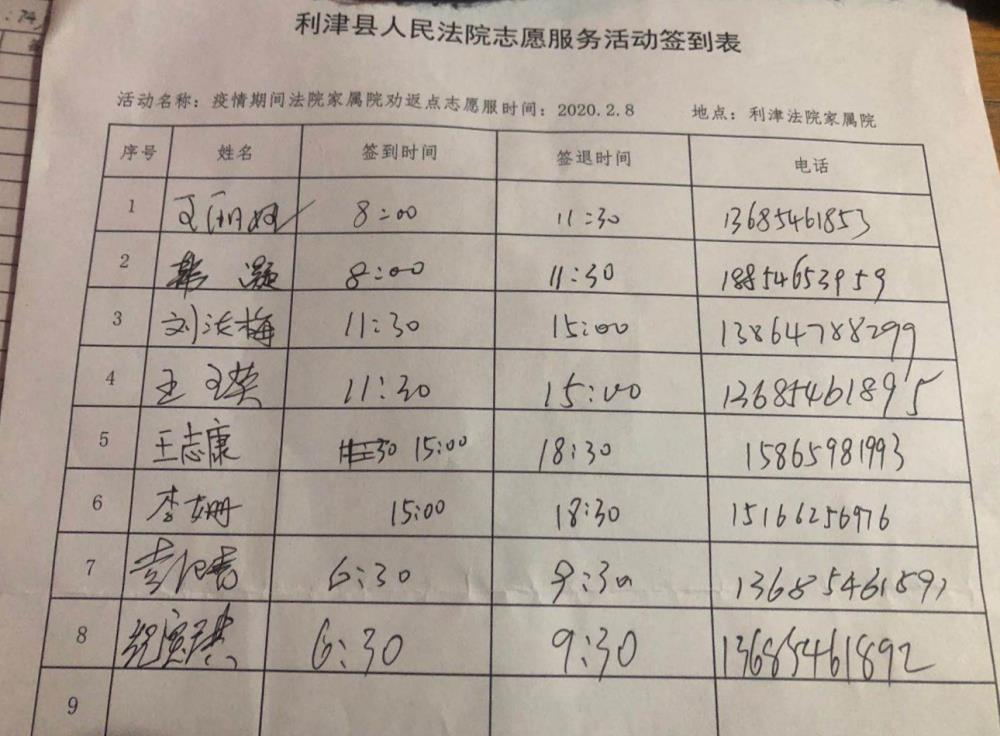 利津县人民法院志愿服务活动签到表
活动名称：疫情期间法院家属院劝返点志愿服时间：2020.2.8 地点：利津法院家属院
序号 姓名 签到时间 签退时间 电话
1 王丽娜 8:00 11:30 13685461853
2 韩凝 8:00 11:30 18854653959
3 刘法梅 11:30 15:00 13864788299
4 王文英 11:30 15:00 13685461895
5 王志康 15:00 18:30 15865981993
6 李姗姗 15:00 18:30 15166256976
7 6:30 9:30 13685461891
8 6:30 9:30 13685461892
9